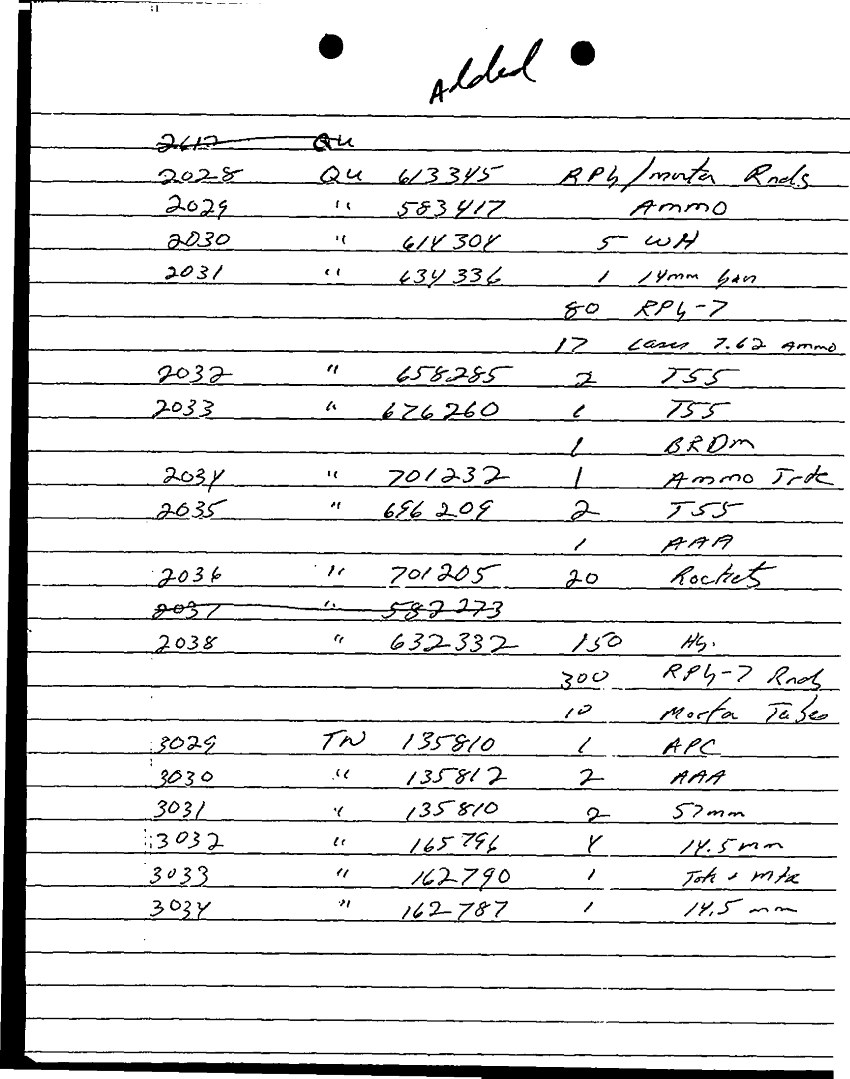 Added
2617 QU
2028 QU 613345 RPG/morta Rnds
2029 " 583417 Ammo
2030 " 614304 5 WH
2031 " 634336 1 14mm gun
80 RPG-7
17 cases 7.62 Ammo
2032 " 658285 2 T55
2033 " 676260 1 T55
1 BRDM
2034 " 701232 1 Ammo Trk
2035 " 696209 2 T55
1 AAA
2036 " 701205 20 Rockets
2037 " 582273
2038 " 632332 150 HG.
300 RPG-7 Rnds
10 Morta Tubes
3029 TN 135810 1 APC
3030 " 135812 2 AAA
3031 " 135810 2 57mm
3032 " 165796 4 14.5 mm
3033 " 162790 1
3034 " 162787 1 14.5 mm